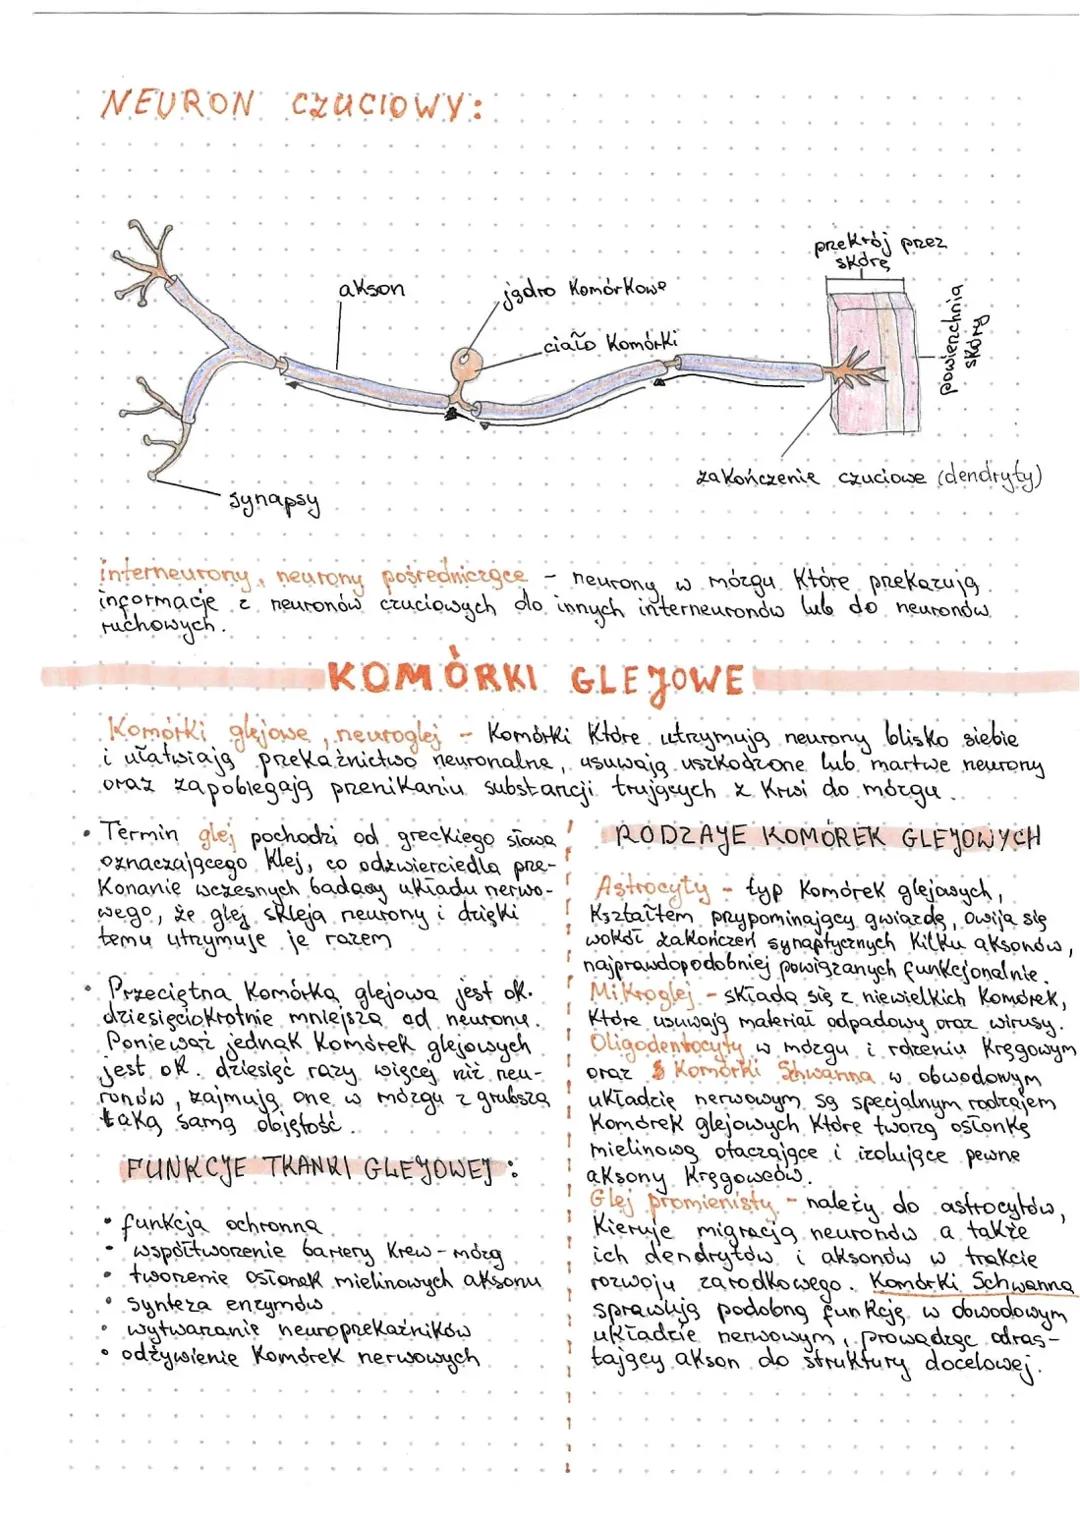 NEURON CZUCIOWY:
przekrój przez
skórę
akson
jądro komórkowe
ciało komórki
powierzchnia
skóry
zakończenie czuciowe (dendryty)
synapsy
interneurony, neurony pośredniczące - neurony w mózgu które przekazują
informację z neuronów czuciowych do innych interneuronów lub do neuronów
ruchowych.
KOMÓRKI GLEJOWE
Komórki glejowe, neuroglej - komórki które utrzymują neurony blisko siebie
i ułatwiają przekaźnictwo neuronalne, usuwają uszkodzone lub martwe neurony
oraz zapobiegają przenikaniu substancji trujących z krwi do mózgu.
• Termin glej pochodzi od greckiego słowa
oznaczającego klej, co odzwierciedla prze-
konanie wczesnych badaczy układu nerwo-
wego, że glej skleja neurony i dzięki
temu utrzymuje je razem
• Przeciętna komórka glejowa jest ok.
dziesięciokrotnie mniejsza od neuronu.
Ponieważ jednak komórek glejowych
jest ok. dziesięć razy więcej niż neu-
ronów, zajmują one w mózgu z grubsza
taką samą objętość.
FUNKCJE TKANKI GLEJOWEJ:
• funkcja ochronna
• współtworzenie bariery krew-mózg
• tworzenie osłonek mielinowych aksonu
• synteza enzymów
• wytwarzanie neuroprzekaźników
• odżywienie komórek nerwowych
RODZAJE KOMÓREK GLEJOWYCH
Astrocyty - typ komórek glejowych,
kształtem przypominający gwiazdę, owija się
wokół zakończeń synaptycznych kilku aksonów,
najprawdopodobniej powiązanych funkcjonalnie.
Mikroglej - składa się z niewielkich komórek,
które usuwają materiał odpadowy oraz wirusy.
Oligodentrocyty w mózgu i rdzeniu kręgowym
oraz komórki Schwanna w obwodowym
układzie nerwowym są specjalnym rodzajem
komórek glejowych które tworzą osłonkę
mielinową otaczające i izolujące pewne
aksony kręgowców.
Glej promienisty - należy do astrocytów,
kieruje migracją neuronów a także
ich dendrytów i aksonów w trakcie
rozwoju zarodkowego. Komórki Schwanna
sprawują podobną funkcję w obwodowym
układzie nerwowym, prowadząc odras-
tający akson do struktury docelowej.